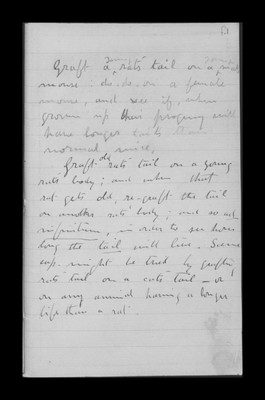 Graft a rat's tail on a male
mouse; do. do. on a female
mouse, and see if, when
grown up their progeny will
have longer tails than
normal mice.
Graft old rats' tail on a young
rats' body; and when that
rat gets old, re-graft the tail
on another rats' body; and so ad
infinitum, in order to see how
long the tail will live. Same
exp. might be tried by grafting
rats' tail on a cats' tail — or
on any animal having a longer
life than a rat.